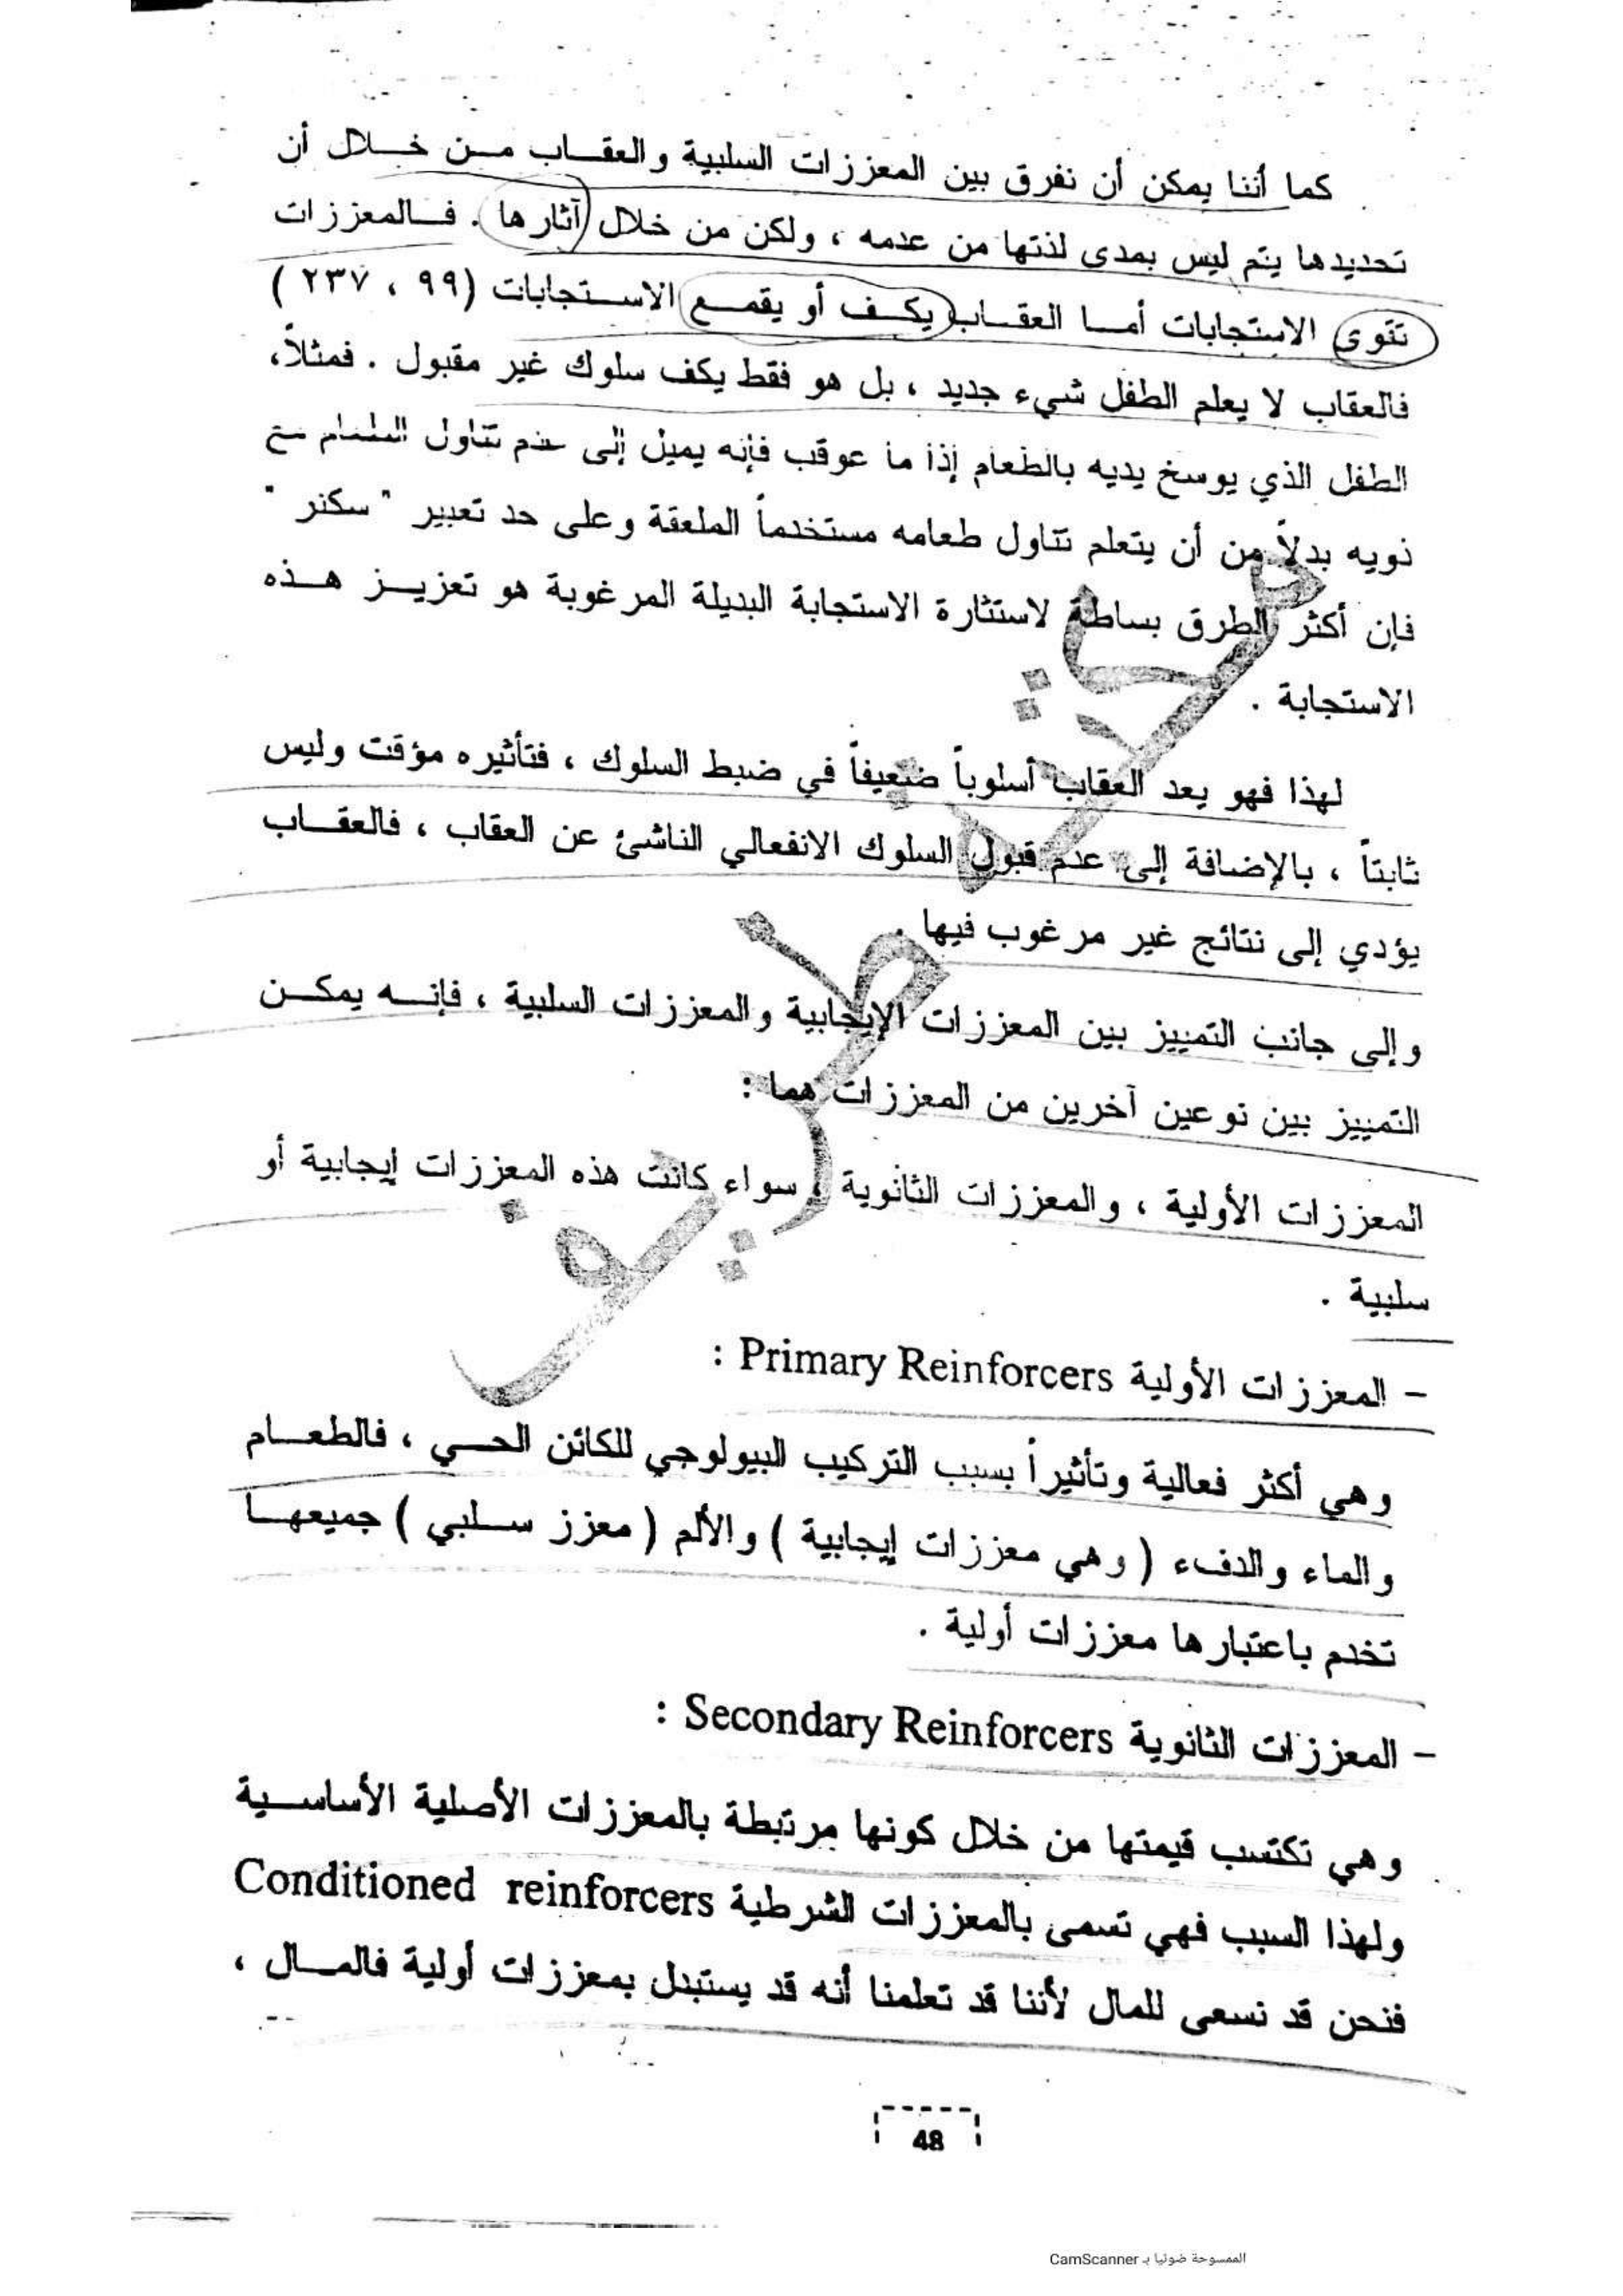 كما أننا يمكن أن نفرق بين المعززات السلبية والعقاب من خلال أن
تحديدها يتم ليس بمدى لذتها من عدمه ، ولكن من خلال آثارها . فالمعززات
تقوى الاستجابات أما العقاب يكف أو يقمع الاستجابات (٩٩ ، ٢٣٧ )
فالعقاب لا يعلم الطفل شيء جديد ، بل هو فقط يكف سلوك غير مقبول . فمثلاً،
الطفل الذي يوسخ يديه بالطعام إذا ما عوقب فإنه يميل إلى عدم تناول الطعام مع
ذويه بدلاً من أن يتعلم تناول طعامه مستخدماً الملعقة وعلى حد تعبير " سكنر "
فإن أكثر الطرق بساطة لاستثارة الاستجابة البديلة المرغوبة هو تعزيز هذه
الاستجابة .
لهذا فهو يعد العقاب أسلوباً ضعيفاً في ضبط السلوك ، فتأثيره مؤقت وليس
ثابتاً ، بالإضافة إلى عدم قبول السلوك الانفعالي الناشئ عن العقاب ، فالعقاب
يؤدي إلى نتائج غير مرغوب فيها .
وإلى جانب التمييز بين المعززات الإيجابية والمعززات السلبية ، فإنه يمكن
التمييز بين نوعين آخرين من المعززات هما :
المعززات الأولية ، والمعززات الثانوية ، سواء كانت هذه المعززات إيجابية أو
سلبية .
- المعززات الأولية Primary Reinforcers :
وهي أكثر فعالية وتأثيراً بسبب التركيب البيولوجي للكائن الحي ، فالطعام
والماء والدفء ( وهي معززات إيجابية ) والألم ( معزز سلبي ) جميعها
تخدم باعتبارها معززات أولية .
- المعززات الثانوية Secondary Reinforcers :
وهي تكتسب قيمتها من خلال كونها مرتبطة بالمعززات الأصلية الأساسية
ولهذا السبب فهي تسمى بالمعززات الشرطية Conditioned reinforcers
فنحن قد نسعى للمال لأننا قد تعلمنا أنه قد يستبدل بمعززات أولية فالمال ،
48
الممسوحة ضوئيا بـ CamScanner